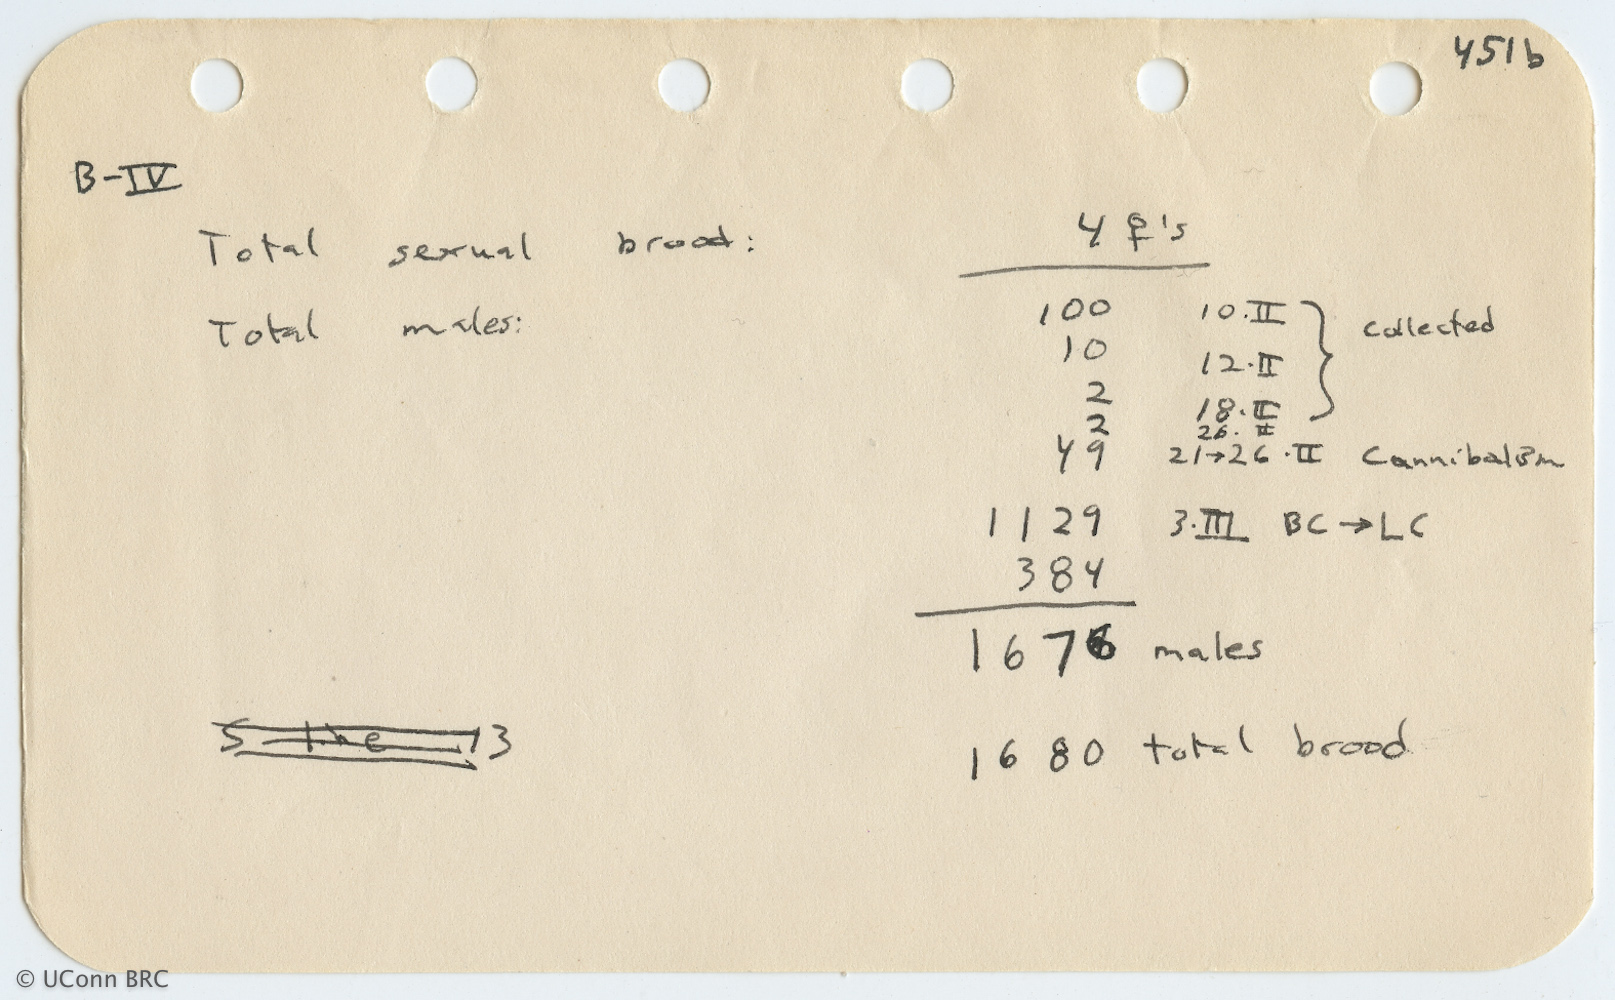 451b
B-IV
Total sexual brood: 4 ♀'s
Total males: 100 10.II } collected
10 12.II
2 18.II
2 26.II
49 21→26.II Cannibalism
1129 3.III BC→LC
384
1676 males
13
1680 total brood
© UConn BRC